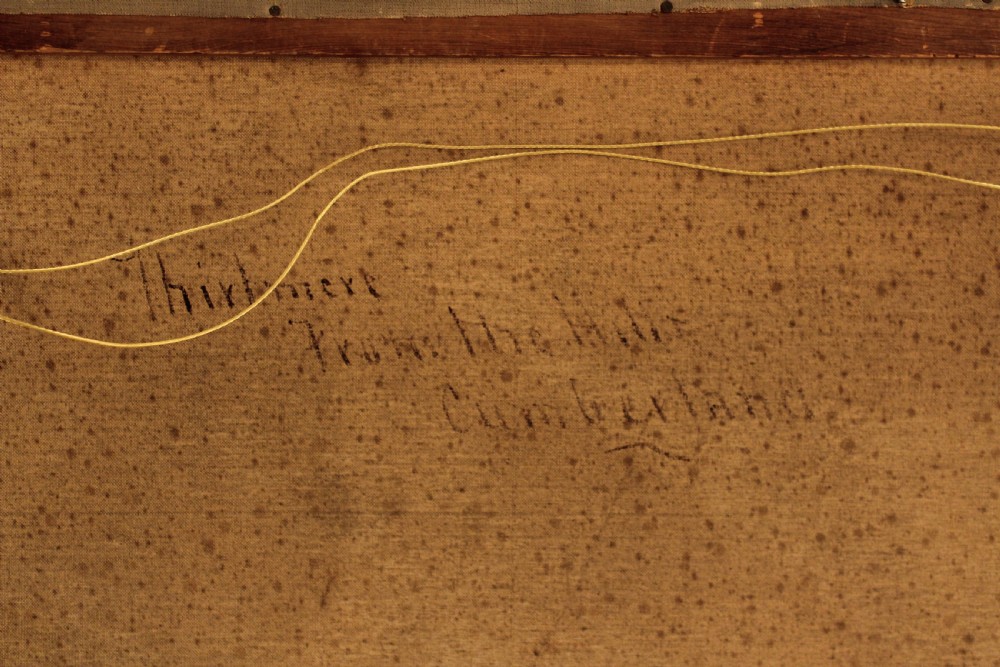 Thirlmere
From the Hills
Cumberland